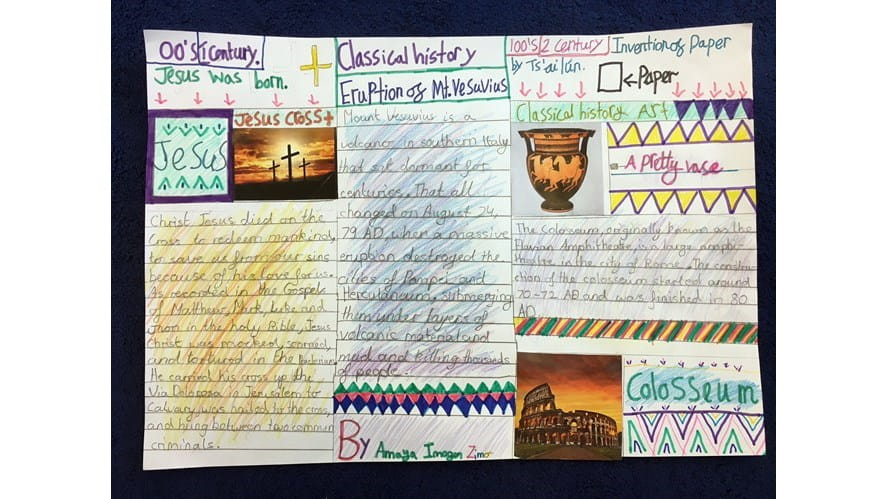 00's 1 Century.
Jesus was born.
Jesus
Jesus Cross
Christ Jesus died on the
Cross to redeem mankind,
to save us from our sins
because of his love for us.
As recorded in the Gospels
of Matthew, Mark, Luke and
Jhon in the holy Bible, Jesus
Christ was mocked, scorned,
and tortured in the
He carried his cross up the
Via Dolorosa in Jerusalem to
Calvary, was nailed to the cross,
and hung between two common
criminals.
Classical history
Eruption of Mt. Vesuvius
Mount Vesuvius is a
volcano in southern Italy
that sat dormant for
centuries. That all
changed on August 24,
79 AD, when a massive
eruption destroyed the
cities of Pompei and
Herculaneum, submerging
them under layers of
volcanic material and
mud and killing thousands
of people.
By Amaya Imogen
100's/2 century Invention of Paper
by Ts'ai lún.
←Paper
Classical history Art
A pretty vase
The Colosseum, originally known as the
Flavian Amphitheatre, is a large amphi-
theatre in the city of Rome. The construc-
tion of the colosseum started around
70-72 AD and was finished in 80
AD.
Colosseum